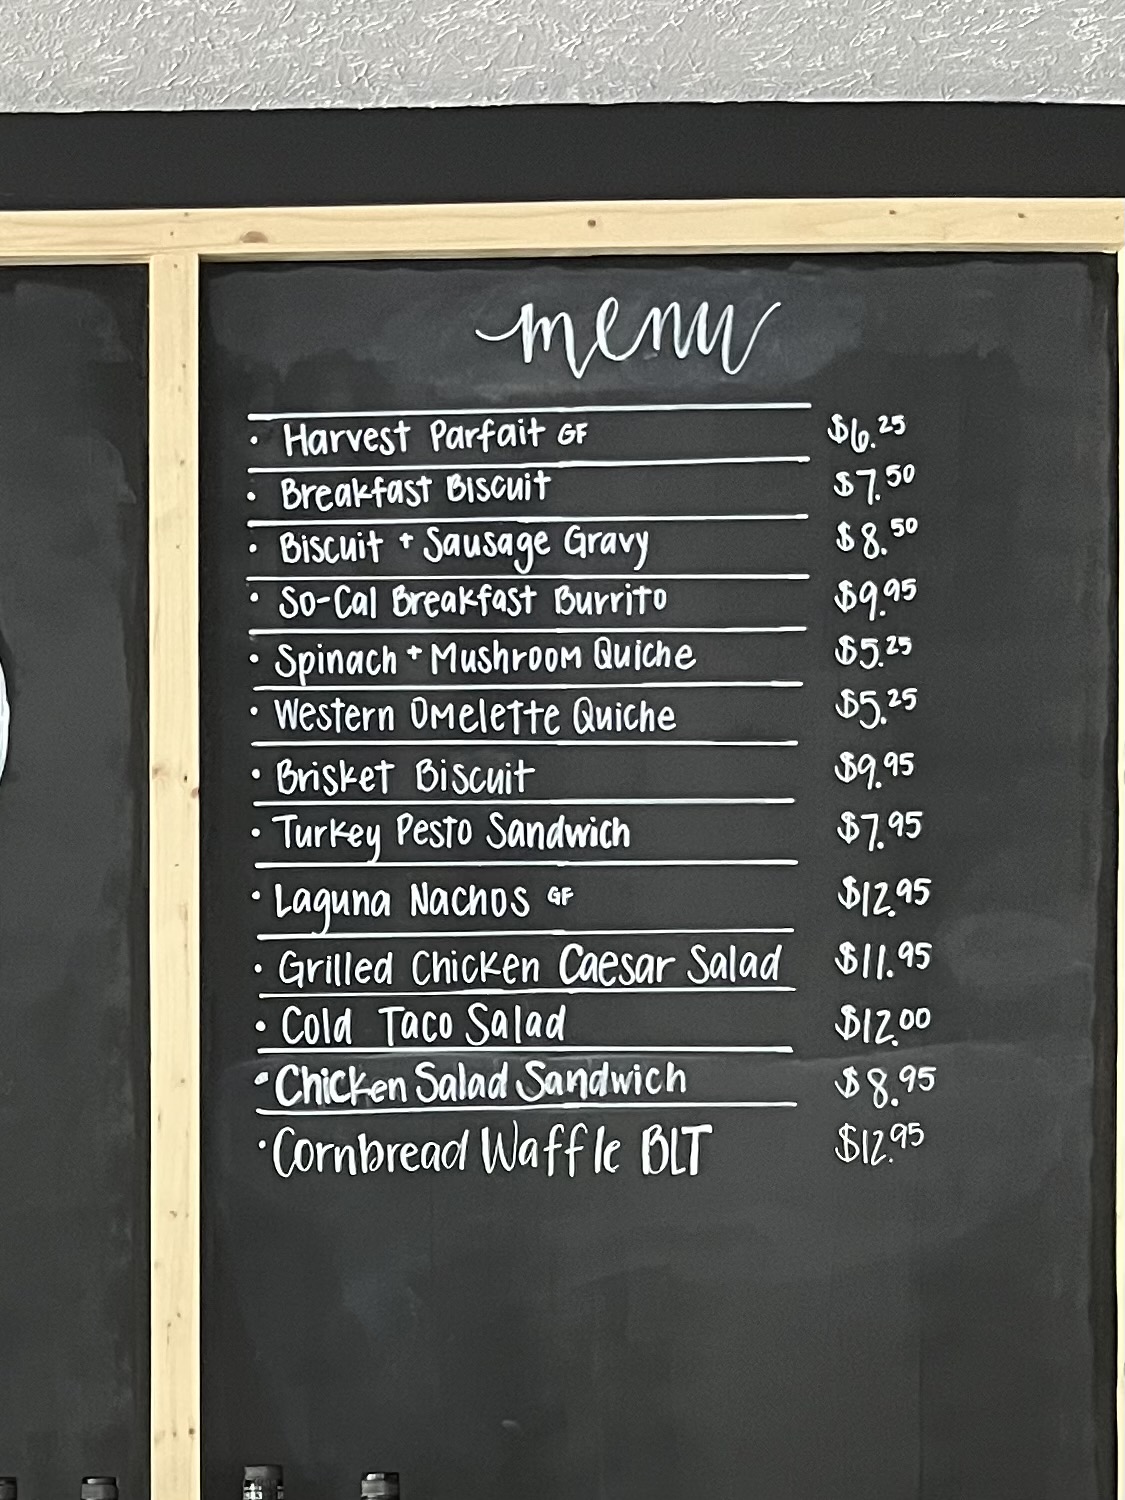 menu
· Harvest Parfait GF $6.25
· Breakfast Biscuit $7.50
· Biscuit + Sausage Gravy $8.50
· So-Cal Breakfast Burrito $9.95
· Spinach + Mushroom Quiche $5.25
· Western Omelette Quiche $5.25
· Brisket Biscuit $9.95
· Turkey Pesto Sandwich $7.95
· Laguna Nachos GF $12.95
· Grilled Chicken Caesar Salad $11.95
· Cold Taco Salad $12.00
· Chicken Salad Sandwich $8.95
· Cornbread Waffle BLT $12.95